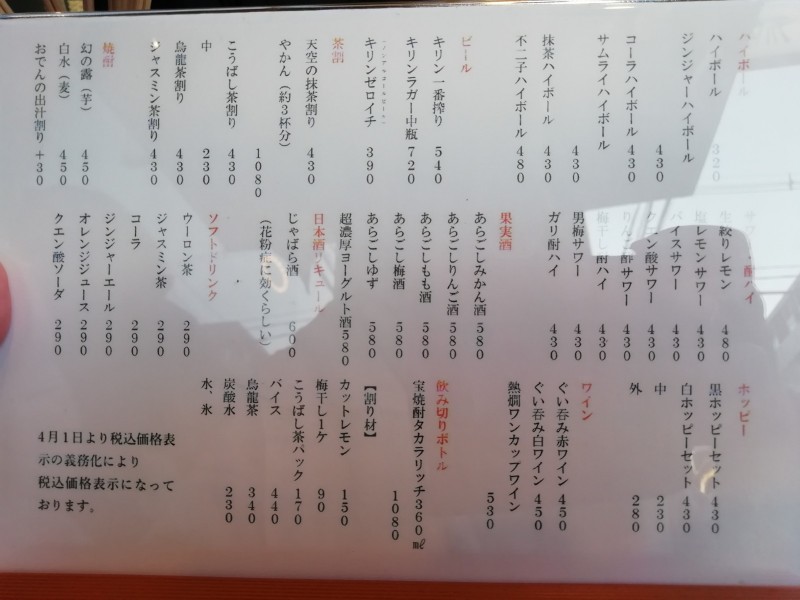 ハイボール
ハイボール 320
ジンジャーハイボール
430
コーラハイボール 430
サムライハイボール
430
抹茶ハイボール 430
不二子ハイボール 480
ビール
キリン一番搾り 540
キリンラガー中瓶 720
キリンゼロイチ 390
茶割
天空の抹茶割り 430
やかん（約3杯分）
1080
こうばし茶割り 430
中 230
烏龍茶割り 430
ジャスミン茶割り 430
焼酎
幻の露（芋） 450
白水（麦） 450
おでんの出汁割り +30
サワー・酎ハイ
生絞りレモン 480
塩レモンサワー 430
バイスサワー 430
クエン酸サワー 430
りんご酢サワー 430
梅干し酎ハイ 430
男梅サワー 430
ガリ酎ハイ 430
果実酒
あらごしみかん酒 580
あらごしりんご酒 580
あらごしもも酒 580
あらごし梅酒 580
あらごしゆず 580
超濃厚ヨーグルト酒 580
日本酒リキュール
じゃばら酒 600
（花粉症に効くらしい）
ソフトドリンク
ウーロン茶 290
ジャスミン茶 290
コーラ 290
ジンジャーエール 290
オレンジジュース 290
クエン酸ソーダ 290
ホッピー
黒ホッピーセット 430
白ホッピーセット 430
中 230
外 280
ワイン
ぐい呑み赤ワイン 450
ぐい呑み白ワイン 450
熱燗ワンカップワイン
530
飲み切りボトル
宝焼酎タカラリッチ360㎖
1080
【割り材】
カットレモン 150
梅干し1ケ 90
こうばし茶パック 170
バイス 440
烏龍茶 340
炭酸水 230
水、氷
4月1日より税込価格表
示の義務化により
税込価格表示になって
おります。